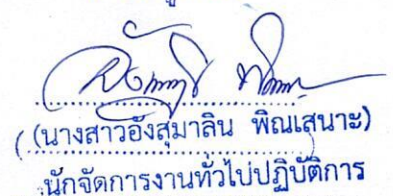 (นางสาวอังสุมาลิน พิณเสนาะ)
นักจัดการงานทั่วไปปฏิบัติการ